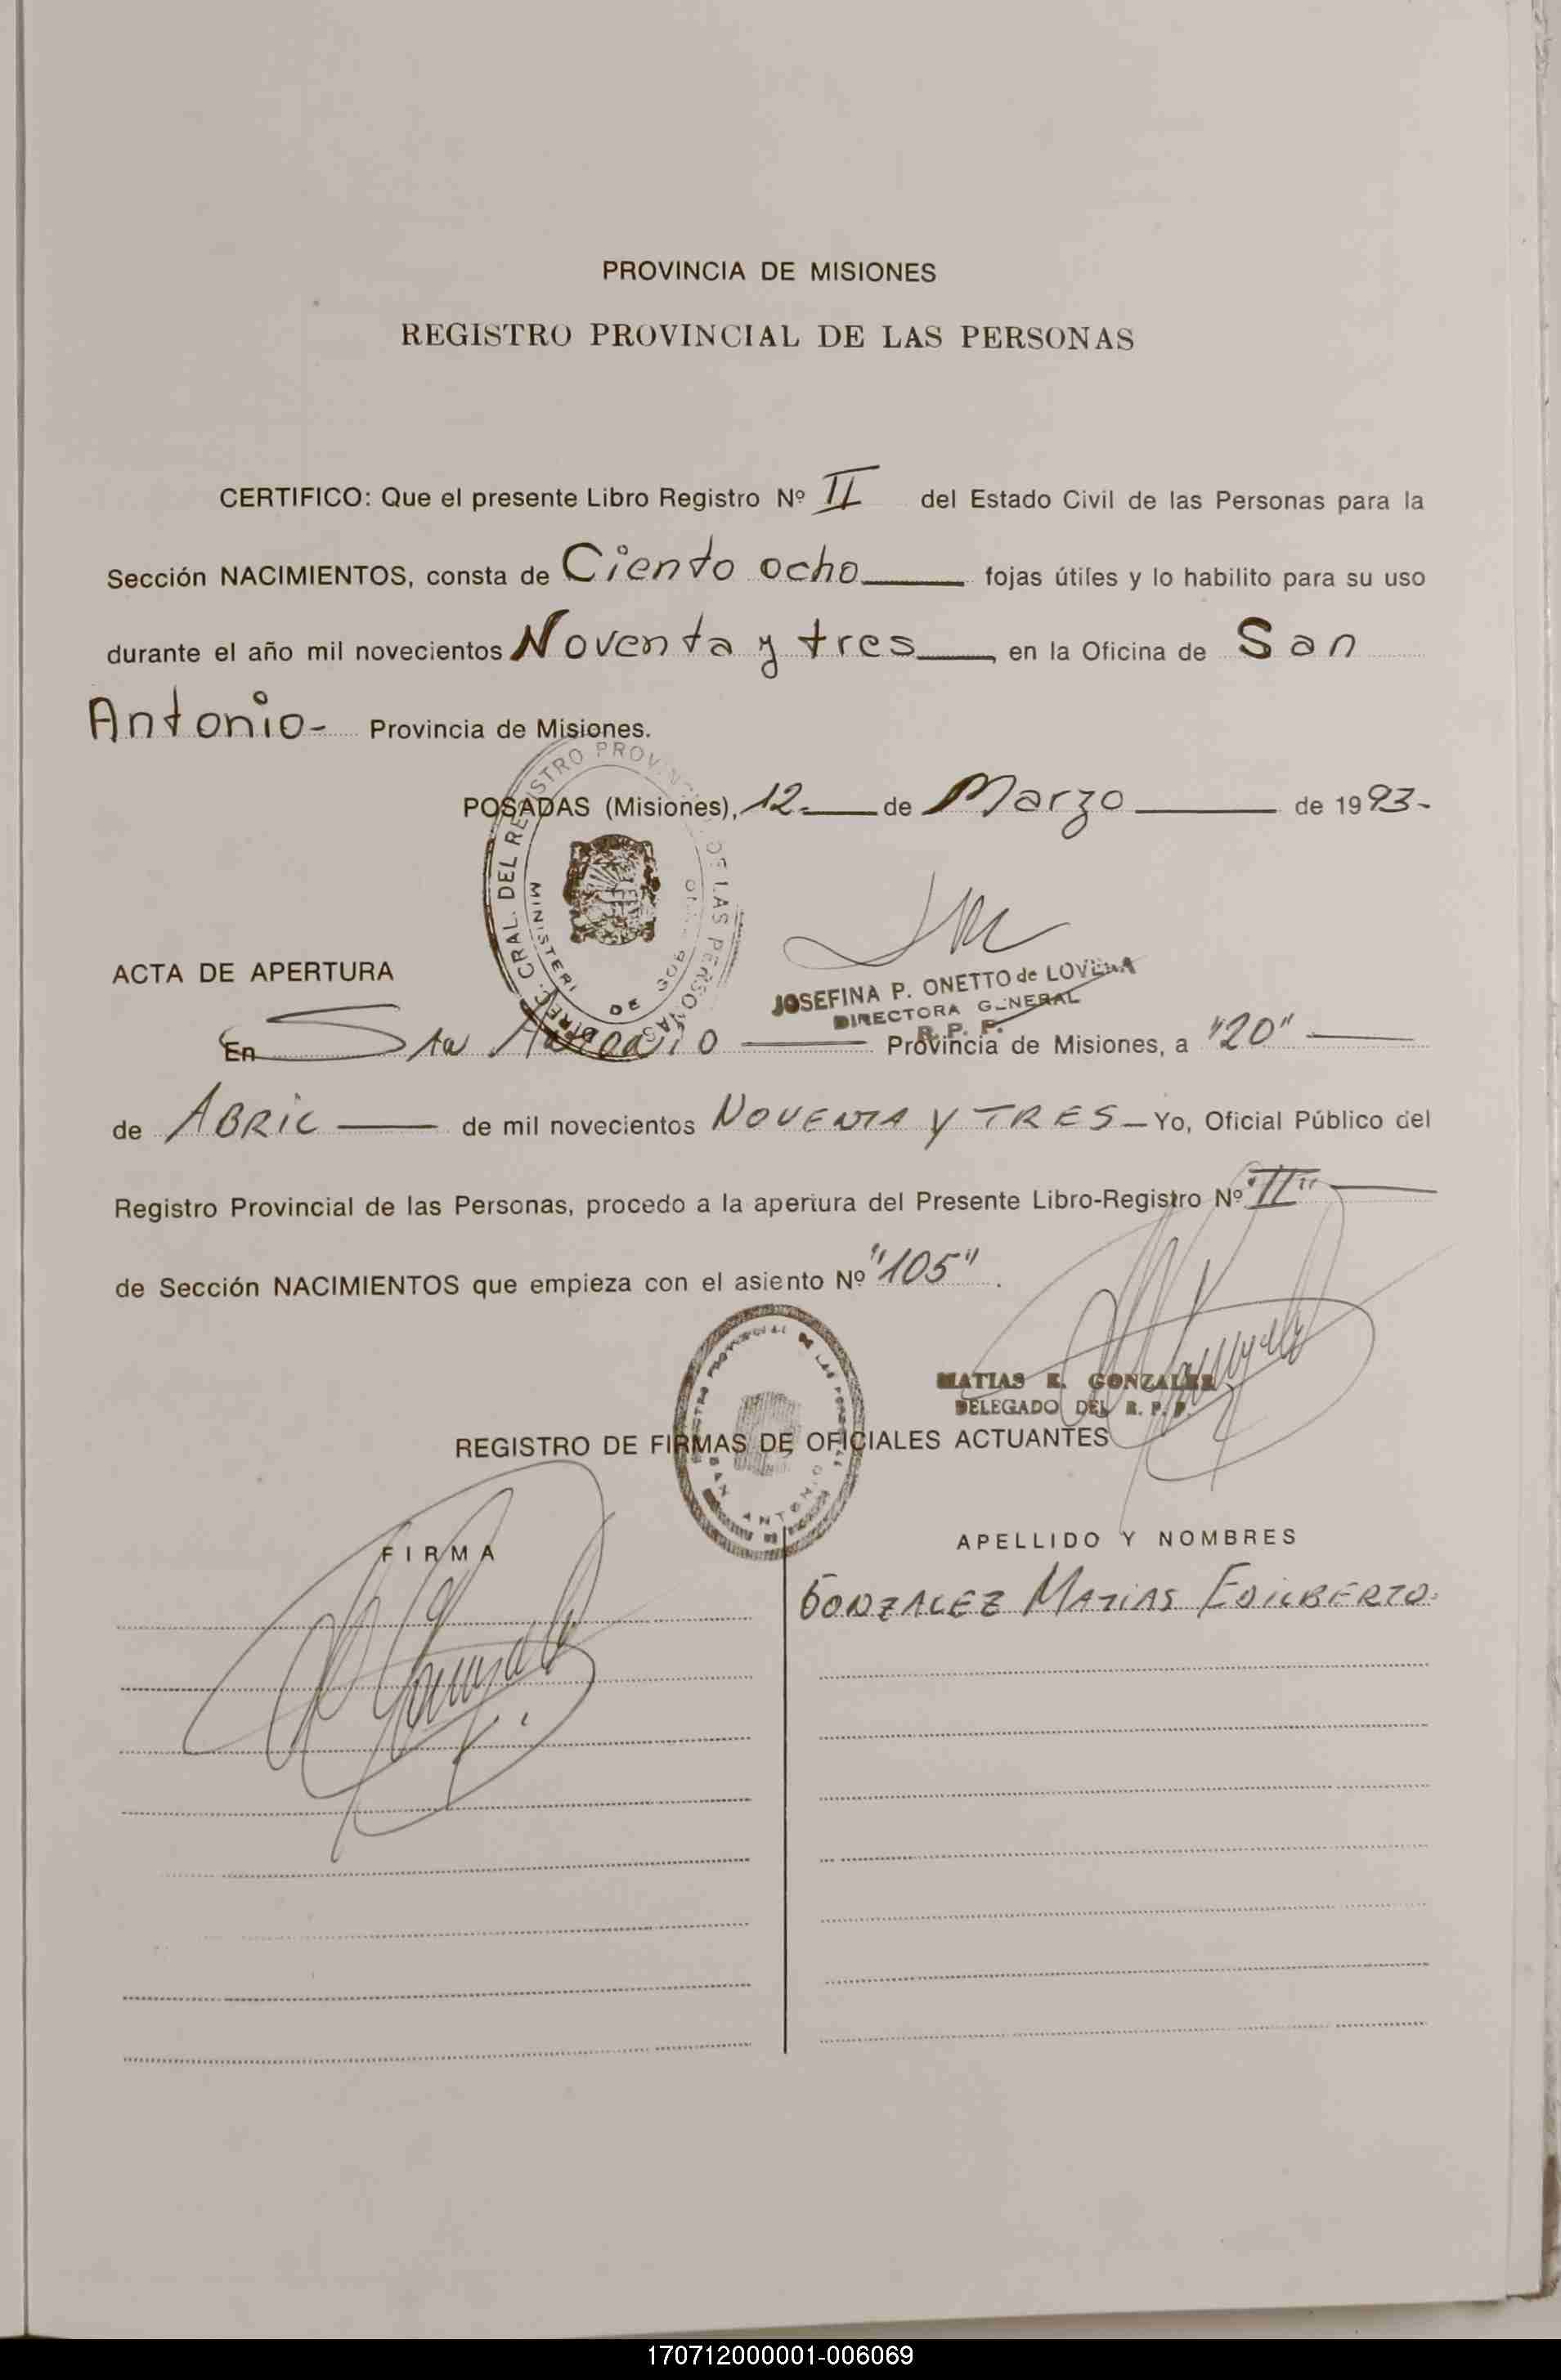 PROVINCIA DE MISIONES
REGISTRO PROVINCIAL DE LAS PERSONAS
CERTIFICO: Que el presente Libro Registro Nº II del Estado Civil de las Personas para la
Sección NACIMIENTOS, consta de Ciento ocho fojas útiles y lo habilito para su uso
durante el año mil novecientos Noventa y tres en la Oficina de San
Antonio- Provincia de Misiones.
POSADAS (Misiones), 12 de Marzo de 1993-
DIREC. GRAL. DEL REGISTRO PROVINC DE LAS PERSONAS
MINISTERI DE GOB
JOSEFINA P. ONETTO de LOVERA
DIRECTORA GENERAL
R. P. P.
ACTA DE APERTURA
En San Antonio Provincia de Misiones, a "20"
de ABRIL de mil novecientos NOVENTA Y TRES - Yo, Oficial Público del
Registro Provincial de las Personas, procedo a la apertura del Presente Libro-Registro Nº "II"
de Sección NACIMIENTOS que empieza con el asiento Nº "105".
REGISTRO PROVINCIAL DE LAS PERSONAS
SAN ANTONIO
MATIAS E. GONZALEZ
DELEGADO DEL R. P. P.
REGISTRO DE FIRMAS DE OFICIALES ACTUANTES
FIRMA
APELLIDO Y NOMBRES
GONZALEZ MATIAS EDILBERTO.
170712000001-006069